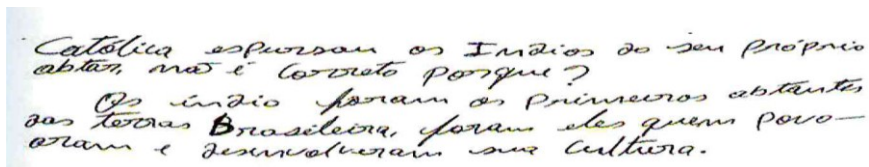 Católica espursou os Indios do seu próprio
abtar, não é Correto porque?
Os índio foram os primeiros abtantes
das terras Brasileira, foram eles quem povo-
aram e desenvolveram sua cultura.